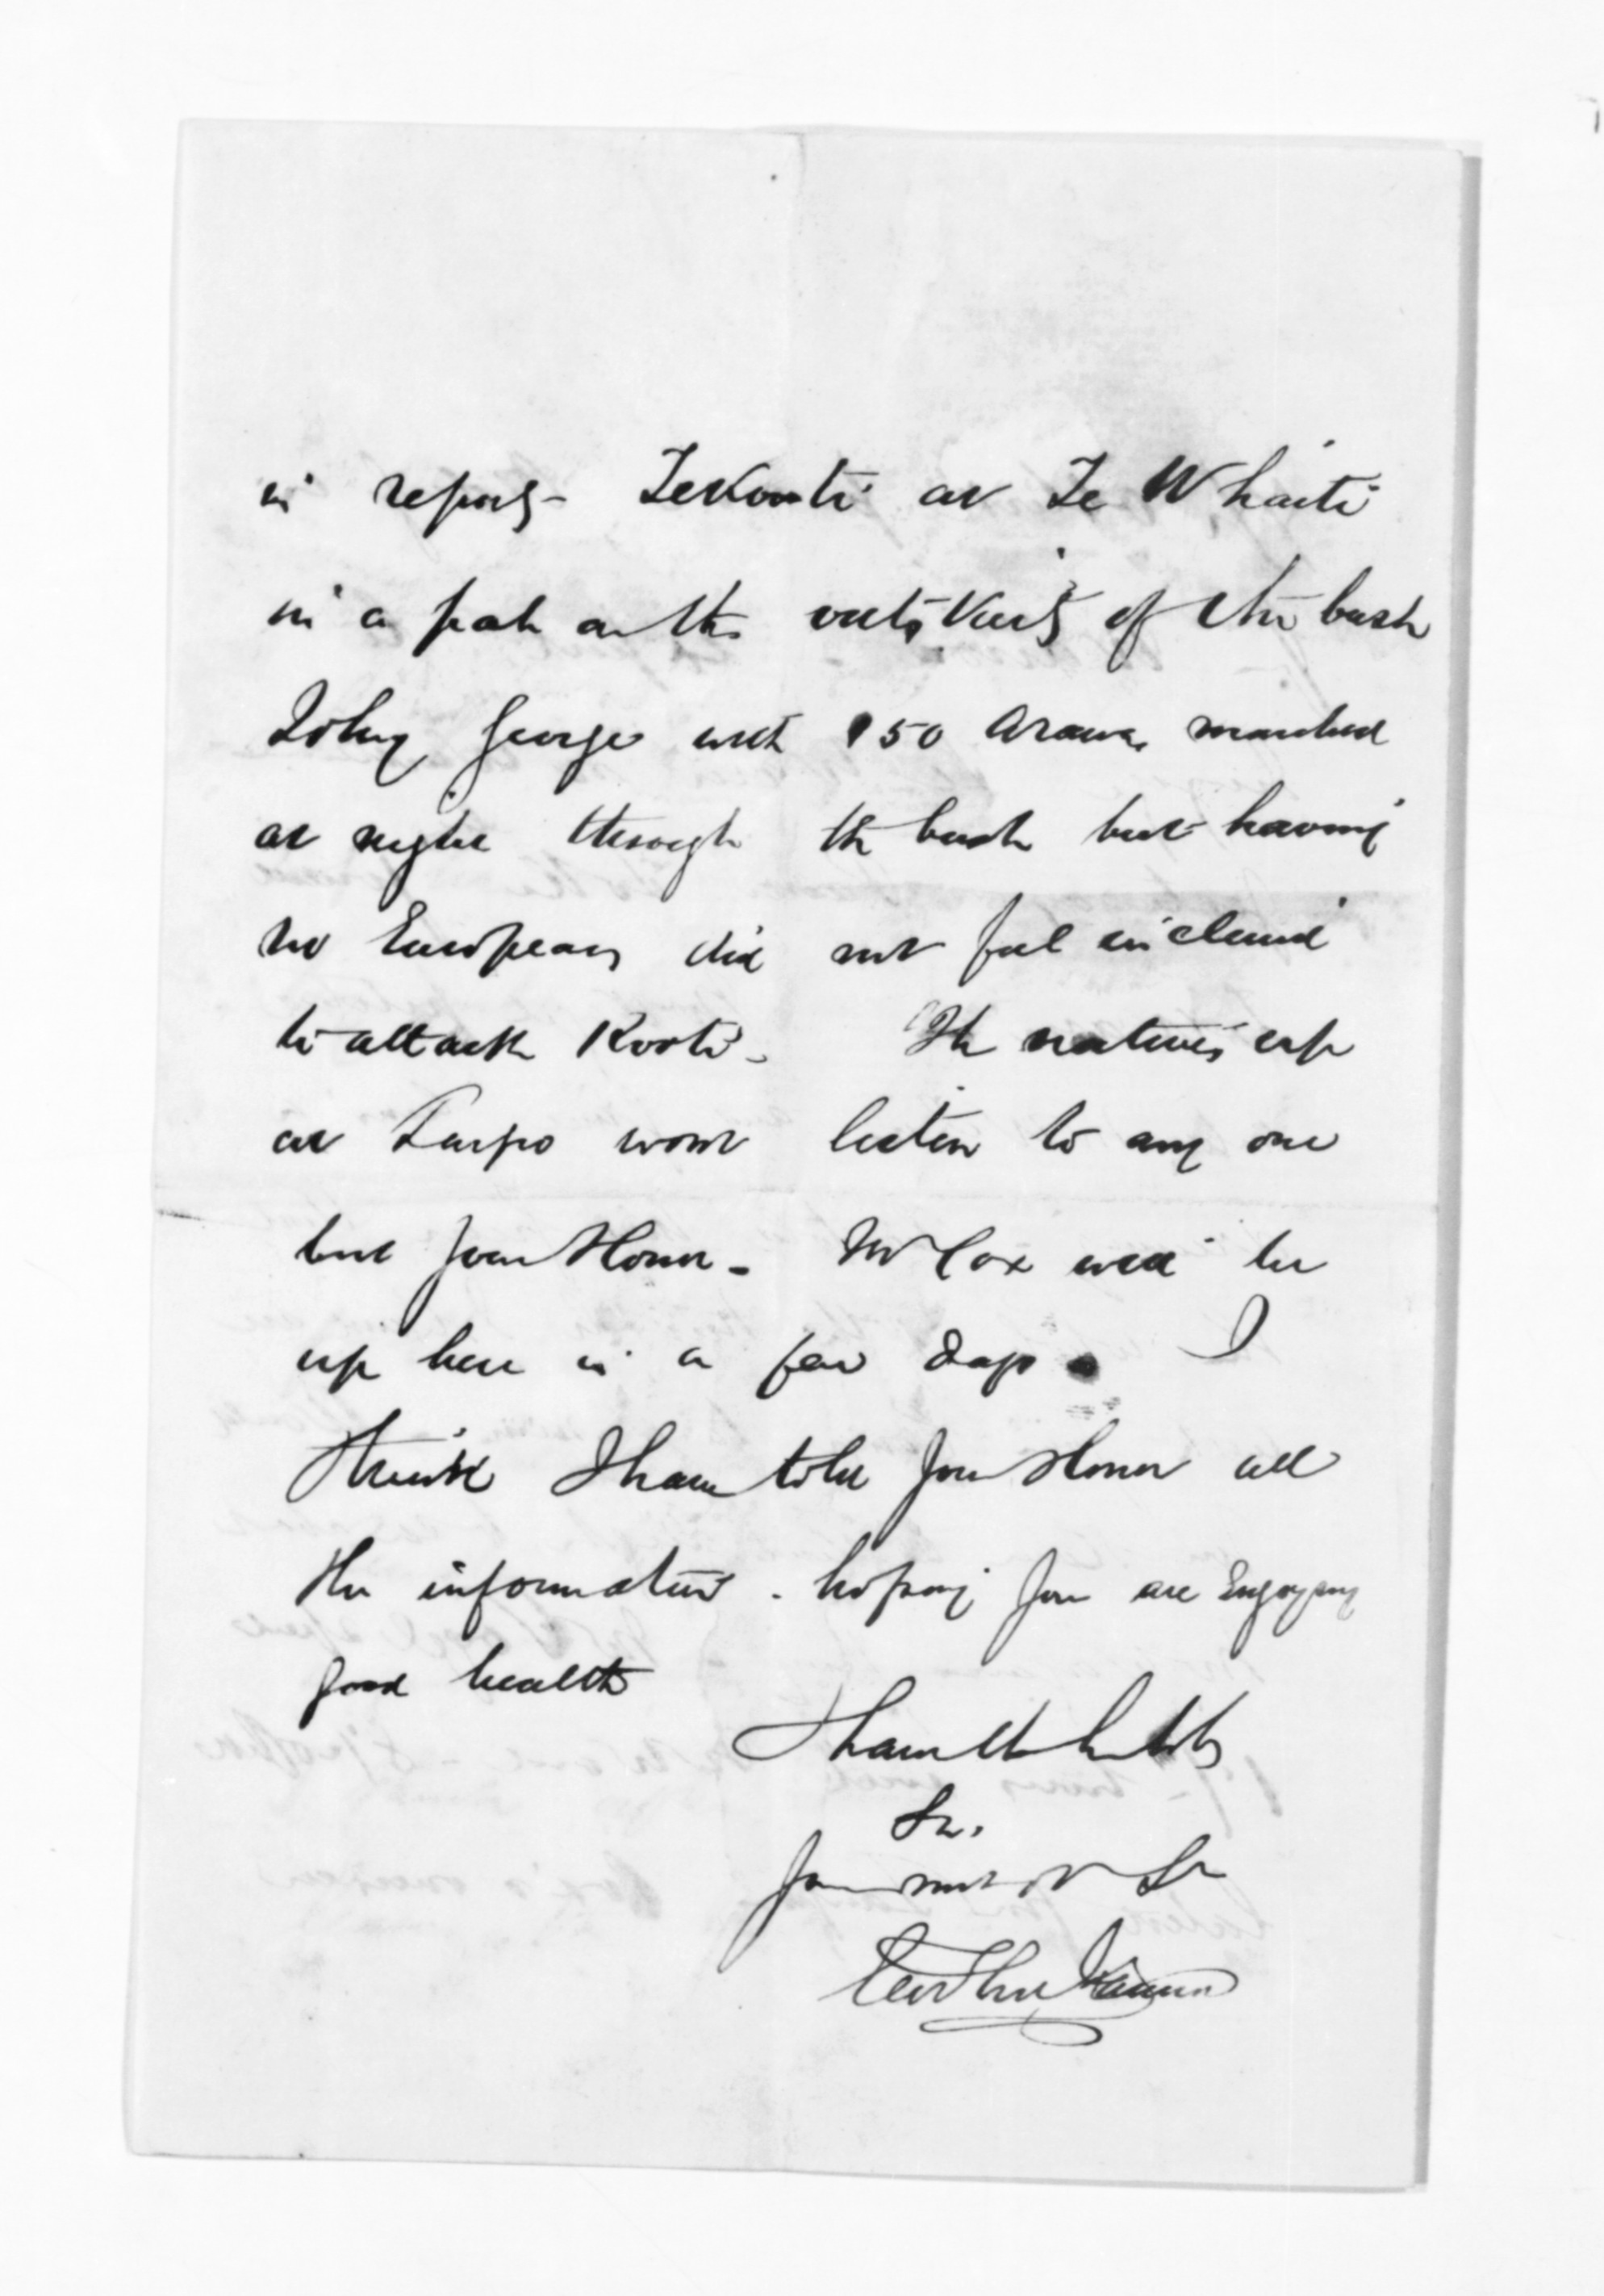 is report - TeKooti at Te Whaiti
in a pah on the outskirts of the bush
George with 150 Arawas marched
at night through the bush but having
no Europeans did not feel inclined
to attack Kooti - The natives up
at Taupo wont listen to any one
but your Honor - Mr Cox will be
up here in a few days. I
think I have told your Honor all
the information. hoping you are Enjoying
good health
I have the
Sir.
Your